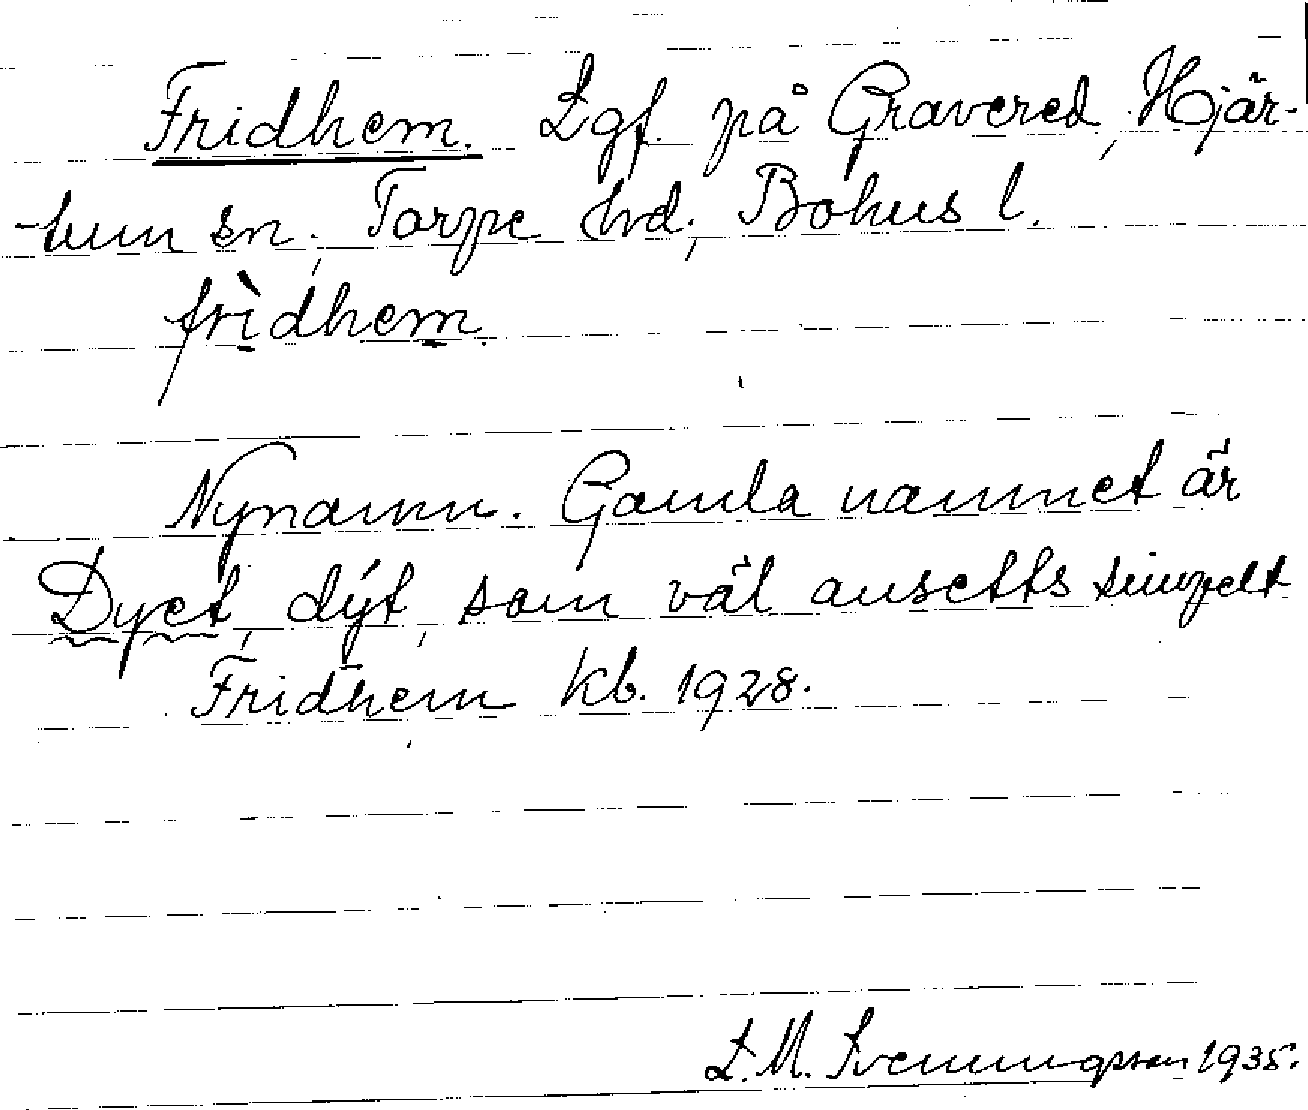 Fridhem. Lgf. på Gravered, Hjär-
tum sn, Torpe hd, Bohus l.
frìdhem
Nynamn. Gamla namnet är
Dyet, dýt, som väl ansetts simpelt
Fridhem kb. 1928.
L. M. Svenungsson 1935.